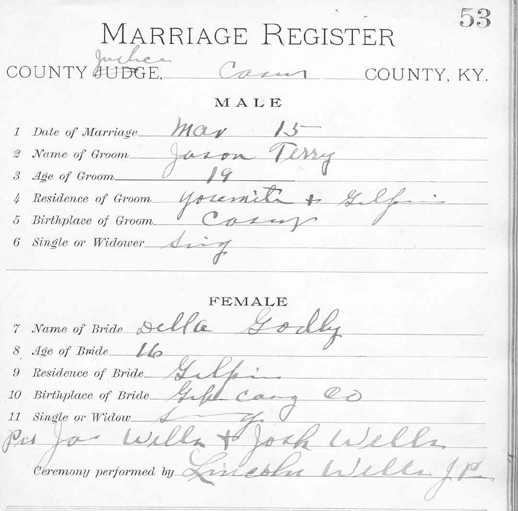 53
MARRIAGE REGISTER
Justice
COUNTY JUDGE, Casey COUNTY, KY.
MALE
1 Date of Marriage Mar 15
2 Name of Groom Jason Terry
3 Age of Groom 19
4 Residence of Groom Yosemite + Gilpin
5 Birthplace of Groom Casey
6 Single or Widower Sing
FEMALE
7 Name of Bride Della Godby
8 Age of Bride 16
9 Residence of Bride Gilpin
10 Birthplace of Bride Casey Co
11 Single or Widow Sing
Jas Wells + Josh Wells
Ceremony performed by Lincoln Wells J.P.